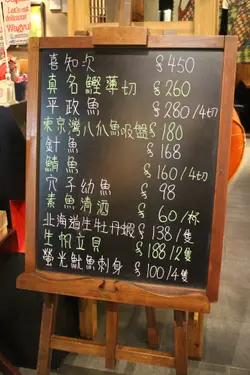 Let's eat
delicious
Wagyu
喜知次 $450
真名鰹薄切 $260
平政魚 $280/4切
東京灣八爪魚吸盤 $180
針魚 $168
鯖魚 $160/4切
穴子幼魚 $98
素魚清酒 $60/杯
北海道生牡丹蝦 $138/隻
生帆立貝 $188/2隻
螢光魷魚刺身 $100/4隻